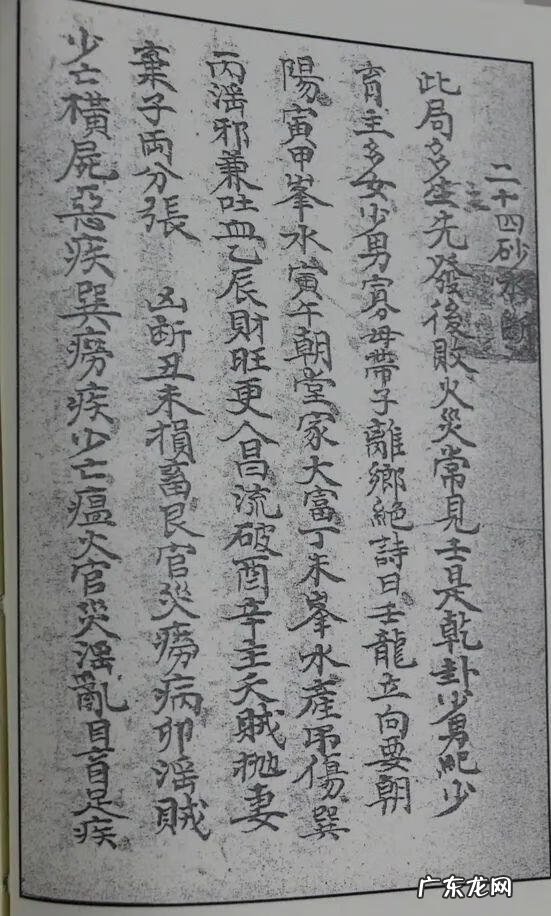 二十四砂水斷
此局多主生先發後敗火災常見壬是乾卦少男絕少
育主多女少男寡母帶子離鄉絕詩曰壬龍立向要朝
陽寅甲峯水寅午朝堂家大富丁未峯水產吊傷巽
丙滛邪兼吐血乙辰財旺更人昌流破酉辛主夭賊抛妻
棄子兩分張 凶断丑未損畜艮官災痨病卯滛賊
少亡橫屍惡疾巽痨疾少亡瘟火官災滛亂目盲足疾
广东龙网